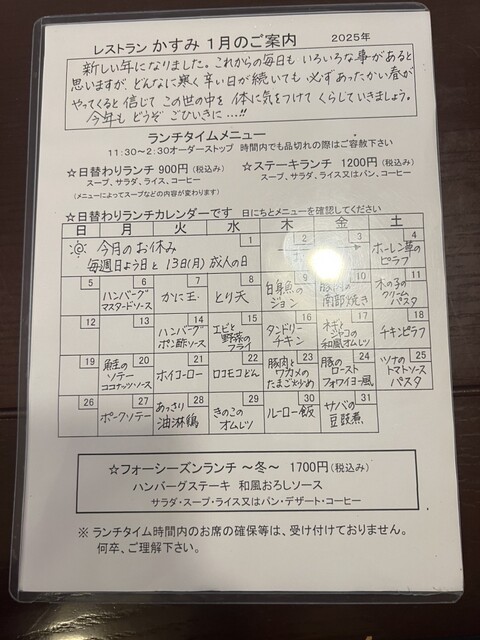 レストラン かすみ 1月のご案内 2025年
新しい年になりました。これからの毎日も いろいろな事があると
思いますが、どんなに寒く辛い日が続いても 必ずあったかい春が
やってくると信じて この世の中を 体に気をつけて くらしていきましょう。
今年も どうぞ ごひいきに…!!
ランチタイムメニュー
11:30～2:30オーダーストップ 時間内でも品切れの際はご容赦下さい
☆日替わりランチ 900円(税込み) ☆ステーキランチ 1200円(税込み)
スープ、サラダ、ライス、コーヒー スープ、サラダ、ライス又はパン、コーヒー
(メニューによってスープなどの内容が変わります)
☆日替わりランチカレンダーです 日にちとメニューを確認してください
日 月 火 水 木 金 土
今月のお休み
毎週日よう日と 13日(月) 成人の日
1 2 3 4
ホーレン草の
ピラフ
5 6 7 8 9 10 11
ハンバーグ
マスタードソース
かに玉
とり天
白身魚の
ジョン
豚肉の
南部焼き
木の子の
クリーム
パスタ
12 13 14 15 16 17 18
ハンバーグ
ポン酢ソース
エビと
野菜の
フライ
タンドリー
チキン
ジャコの
和風オムレツ
チキンピラフ
19 20 21 22 23 24 25
鮭の
ソテー
ココナッツソース
ホイコーロー
ロコモコどん
豚肉と
ワカメの
たまご炒め
豚の
ロースト
フォワイヨー風
ツナの
トマトソース
パスタ
26 27 28 29 30 31
ポークソテー
あっさり
油淋鶏
きのこの
オムレツ
ルーロー飯
サバの
豆豉煮
☆フォーシーズンランチ ～冬～ 1700円(税込み)
ハンバーグステーキ 和風おろしソース
サラダ・スープ・ライス又はパン・デザート・コーヒー
※ ランチタイム時間内のお席の確保等は、受け付けておりません。
何卒、ご理解下さい。